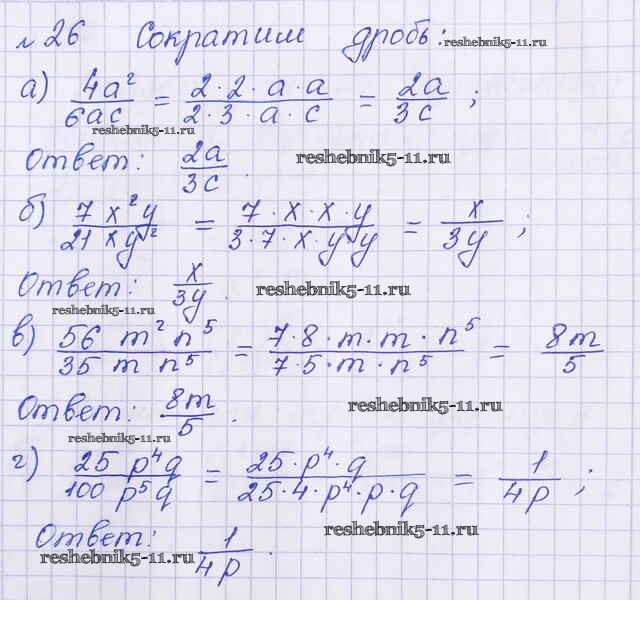 № 26 Сократим дробь: reshebnik5-11.ru
а) 4a²/6ac = 2·2·a·a/2·3·a·c = 2a/3c ;
reshebnik5-11.ru
Ответ: 2a/3c . reshebnik5-11.ru
б) 7x²y/21xy² = 7·x·x·y/3·7·x·y·y = x/3y ;
Ответ: x/3y . reshebnik5-11.ru
reshebnik5-11.ru
в) 56 m² n⁵/35 m n⁵ = 7·8·m·m·n⁵/7·5·m·n⁵ = 8m/5
Ответ: 8m/5 . reshebnik5-11.ru
reshebnik5-11.ru
г) 25 p⁴q/100 p⁵q = 25·p⁴·q/25·4·p⁴·p·q = 1/4p ;
Ответ: 1/4p . reshebnik5-11.ru
reshebnik5-11.ru